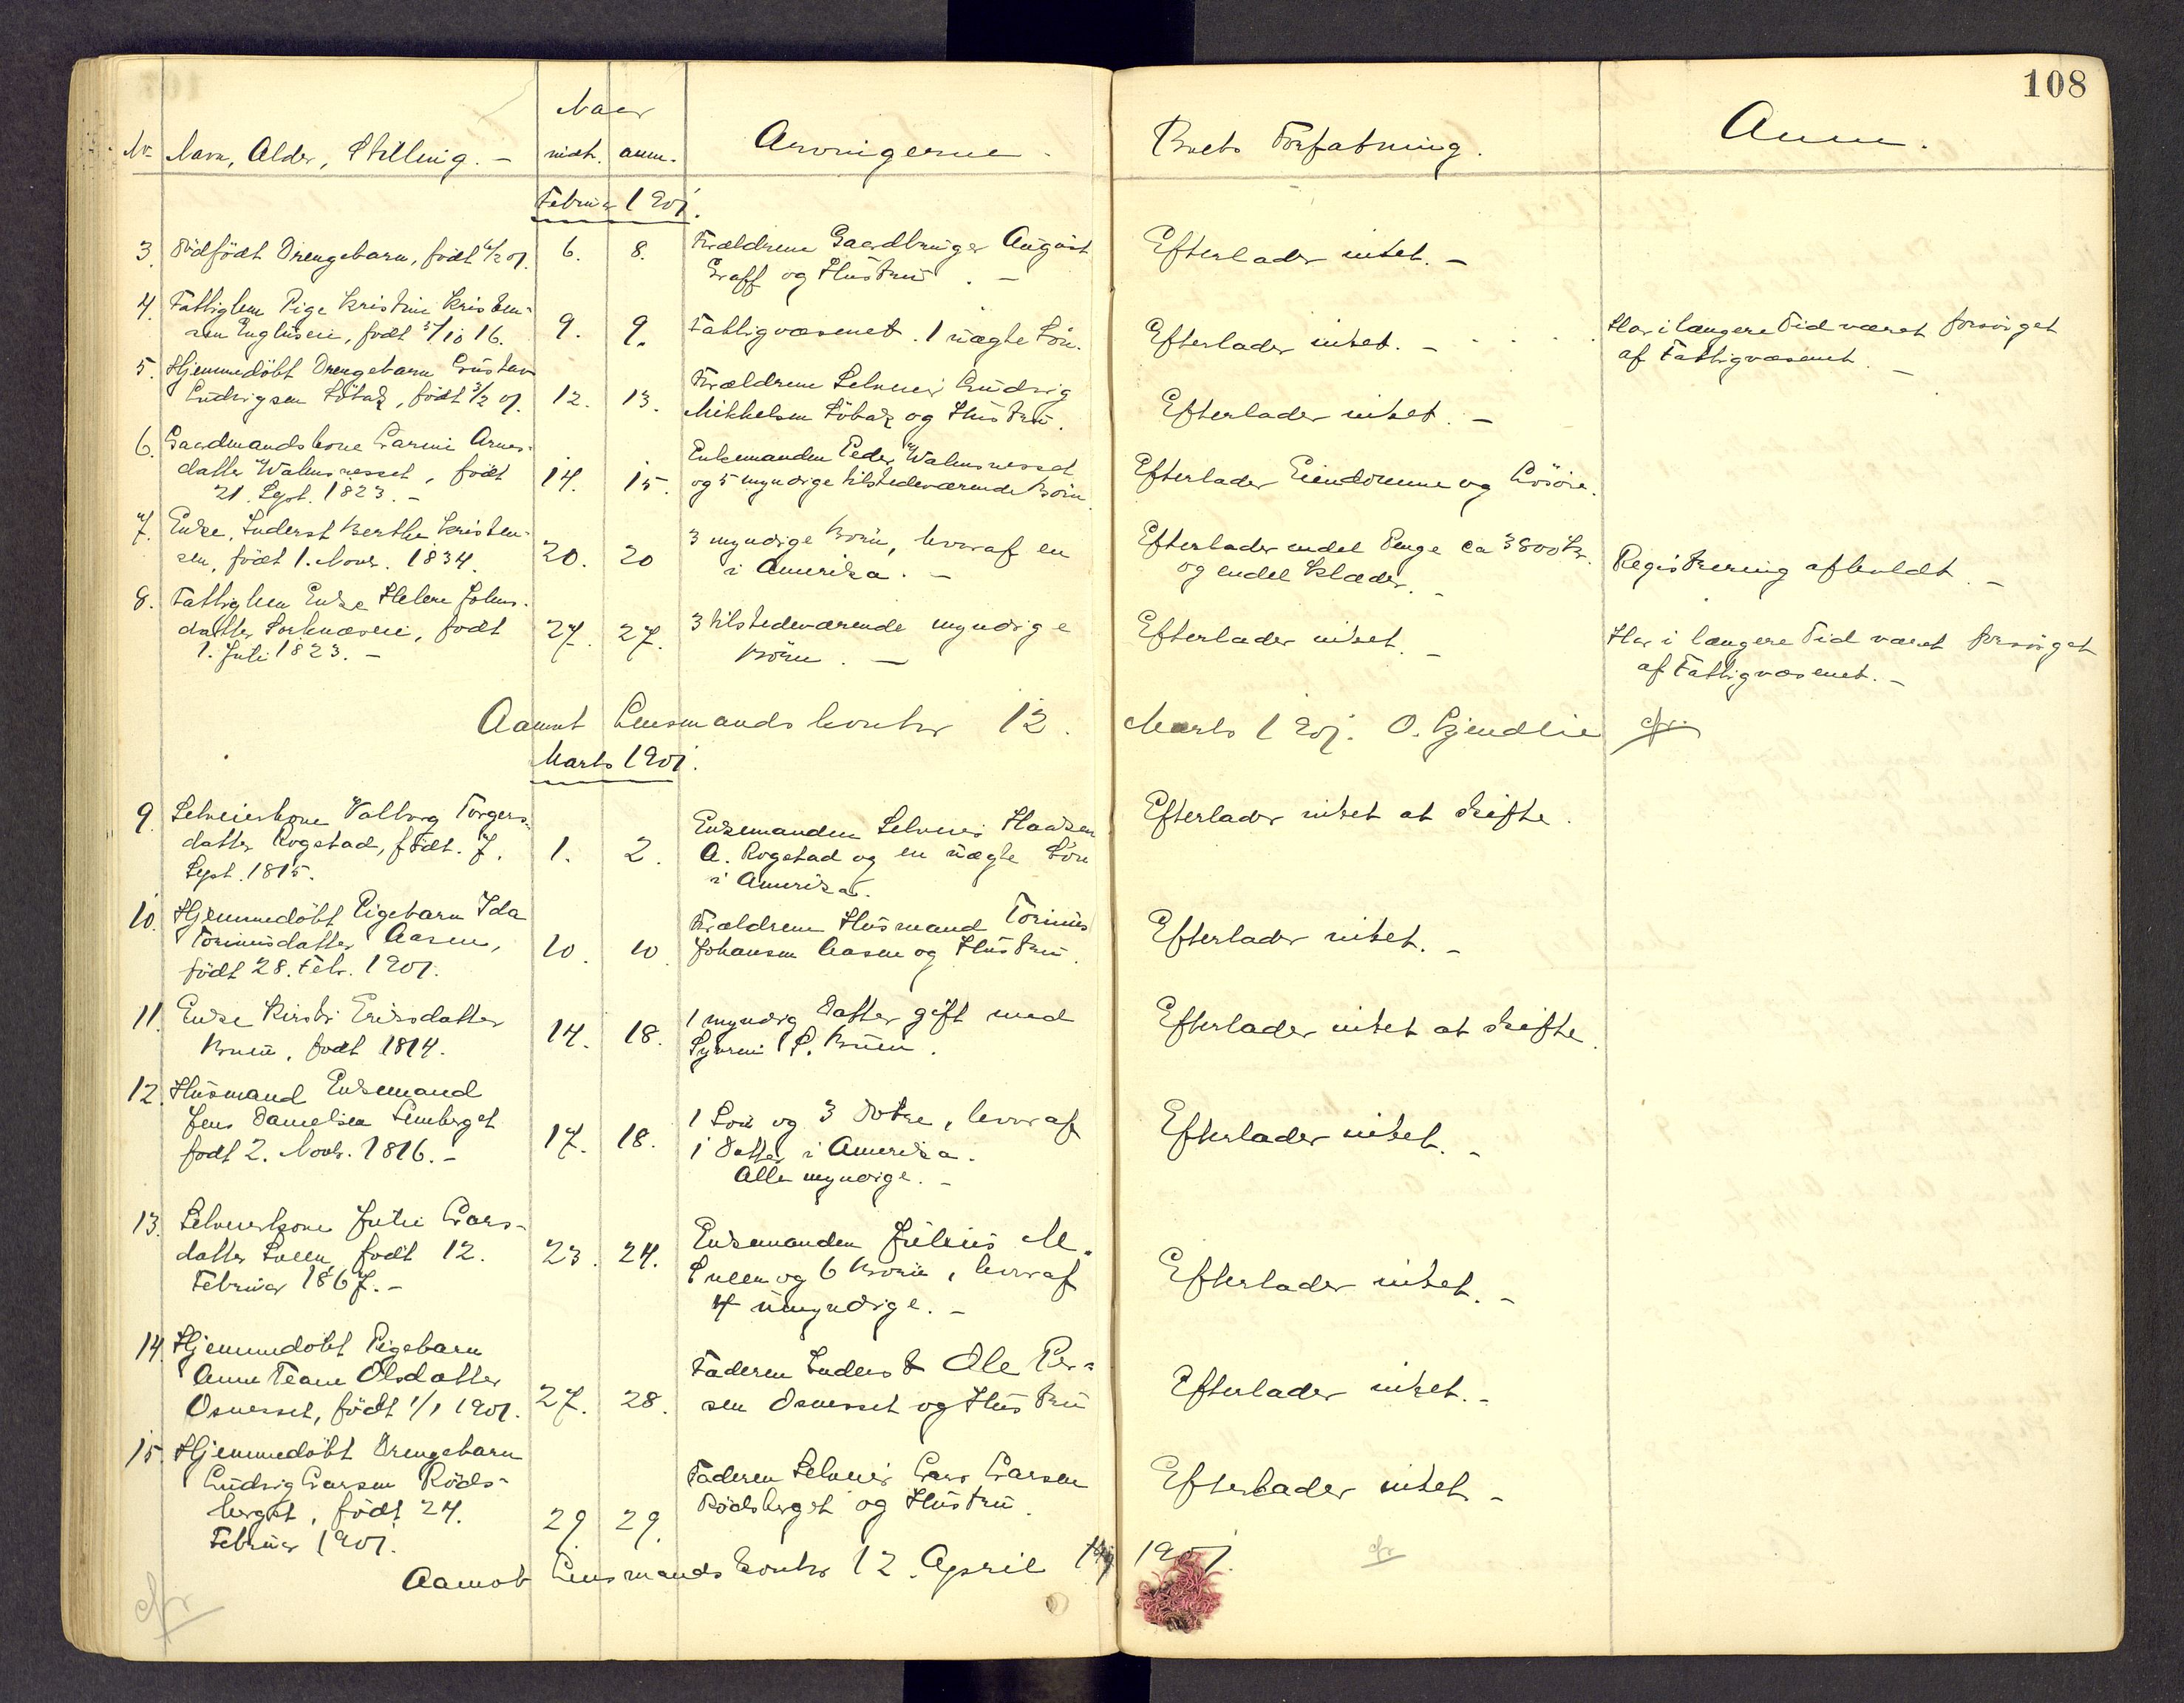 108
Naar
No Navn, Alder, Stilling. - indtr. anm. Arvingerne. Boets Forfatning. Anm.
Februar 1901.
3. Dødfødt Drengebarn, født 6/2 01. 6. 8. Forældrene Gaardbruger August Efterlader intet. -
Graff og Hustru. -
4. Fattiglem Pige Kristine Kristen-
sen Englusen, født 3/10 16. 9. 9. Fattigvæsenet. 1 uægte Søn. Efterlader intet. - Har i længere Tid været forsørget
af Fattigvæsenet. -
5. Hjemmedøbt Drengebarn Gustav Forældrene Selveier Ludvig
Ludvigsen Løbak, født 3/2 01. 12. 13. Mikkelsen Løbak og Hustru. Efterlader intet. -
6. Gaardmandskone Karine Arnes- Enkemanden Peder Walmsnesset
datter Walmsnesset, født 14. 15. og 5 myndige tilstedeværende Børn Efterlader Eiendomme og Løsøre.
21. Sept. 1823. -
7. Enke, Inderst Berthe Kristen- 3 myndige Børn, hvoraf en Efterlader endel Penge ca 3800 Kr.
sen, født 1. Novr. 1834. 20. 20 i Amerika. - og endel Klæder. - Registrering afholdt. -
8. Fattiglem Enke Helene Johns-
datter Sorknæseie, født 27. 27. 3 tilstedeværende myndige Efterlader intet. - Har i længere Tid været forsørget
1. Juli 1823. - Børn. - af Fattigvæsenet. -
Aamot Lensmandskontor 12. Marts 1901. O. Gjendlie
Marts 1901.
9. Selveierkone Valborg Torgers- Enkemanden Selveier Haaken Efterlader intet at skifte.
datter Rogstad, født. 7. 1. 2. A. Rogstad og en uægte Søn
Sept. 1815. i Amerika.
10. Hjemmedøbt Pigebarn Ida Forældrene Husmand Torinus
Torinusdatter Aasen, 10. 10. Johansen Aasen og Hustru. Efterlader intet. -
født 28. Feb. 1901.
11. Enke Kirsti Eriksdatter 1 myndig Datter gift med
født 1814. 14. 18. Efterlader intet at skifte.
12. Husmand Enkemand
Jens Danielsen Lemberget 1 Søn og 3 Døtre, hvoraf
født 2. Novb. 1816. - 17. 18. 1 Datter i Amerika. Efterlader intet. -
Alle myndige. -
13. Selveierkone Julie Lars-
datter født 12. 23. 24. Enkemanden Julius M.
Februar 1867. - og 6 Børn, hvoraf Efterlader intet. -
4 umyndige. -
14. Hjemmedøbt Pigebarn
Anne Olsdatter Faderen Inderst Ole Per-
Osnesset, født 1/1 1901. 27. 28. sen Osnesset og Hustru Efterlader intet. -
15. Hjemmedøbt Drengebarn
Ludvig Larsen Røds- Faderen Selveier Lars Larsen Efterlader intet -
berget, født 24. 29. 29. Rødsberget og Hustru.
Februar 1901.
Aamot Lensmandskontor 12. April 1901